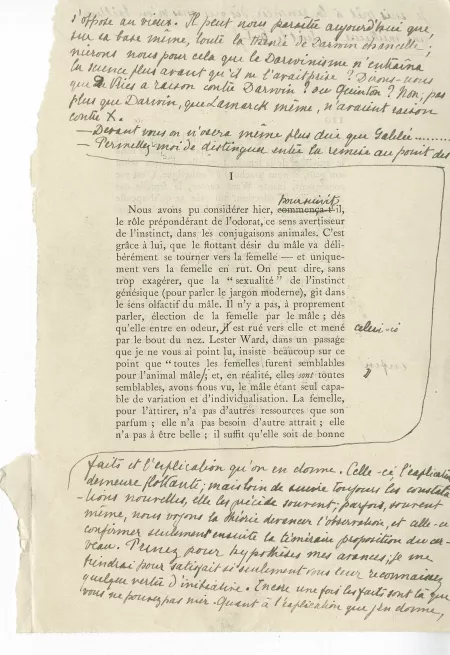 s'oppose au vieux. Il peut nous paraître aujourd'hui que,
sur sa base même, toute la théorie de Darwin chancelle ;
nierons-nous pour cela que le Darwinisme n'entraîna
la science plus avant qu'il ne l'avait prise ? Dirons-nous
que de Vries a raison contre Darwin ? ou Quinton ? Non ; pas
plus que Darwin, que Lamarck même, n'avaient raison
contre X.
— Devant vous on n'osera même plus dire que Galilée..........
— Permettez-moi de distinguer entre la remise au point des
I
poursuivit
Nous avons pu considérer hier, commença-t-il,
le rôle prépondérant de l'odorat, ce sens avertisseur
de l'instinct, dans les conjugaisons animales. C'est
grâce à lui, que le flottant désir du mâle va déli-
bérément se tourner vers la femelle — et unique-
ment vers la femelle en rut. On peut dire, sans
trop exagérer, que la “ sexualité ” de l'instinct
génésique (pour parler le jargon moderne), gît dans
le sens olfactif du mâle. Il n'y a pas, à proprement
parler, élection de la femelle par le mâle ; dès
qu'elle entre en odeur, il est rué vers elle et mené celui-ci
par le bout du nez. Lester Ward, dans un passage
que je ne vous ai point lu, insiste beaucoup sur ce
point que “ toutes les femelles furent semblables
pour l'animal mâle ; et, en réalité, elles sont toutes
semblables, avons nous vu, le mâle étant seul capa-
ble de variation et d'individualisation. La femelle,
pour l'attirer, n'a pas d'autres ressources que son
parfum ; elle n'a pas besoin d'autre attrait ; elle
n'a pas à être belle ; il suffit qu'elle soit de bonne
faits et l'explication qu'on en donne. Celle-ci, l'explication
demeure flottante ; mais loin de suivre toujours les constata-
-tions nouvelles, elle les précède souvent ; parfois, souvent
même, nous voyons la théorie devancer l'observation, et celle-ci
confirmer seulement ensuite la téméraire proposition du cer-
veau. Prenez pour hypothèses mes avances ; je me
tiendrai pour satisfait si seulement vous leur reconnaissez
quelque vertu d'initiative. Encore une fois les faits sont là que
vous ne pouvez pas nier. Quant à l'explication que j'en donne,